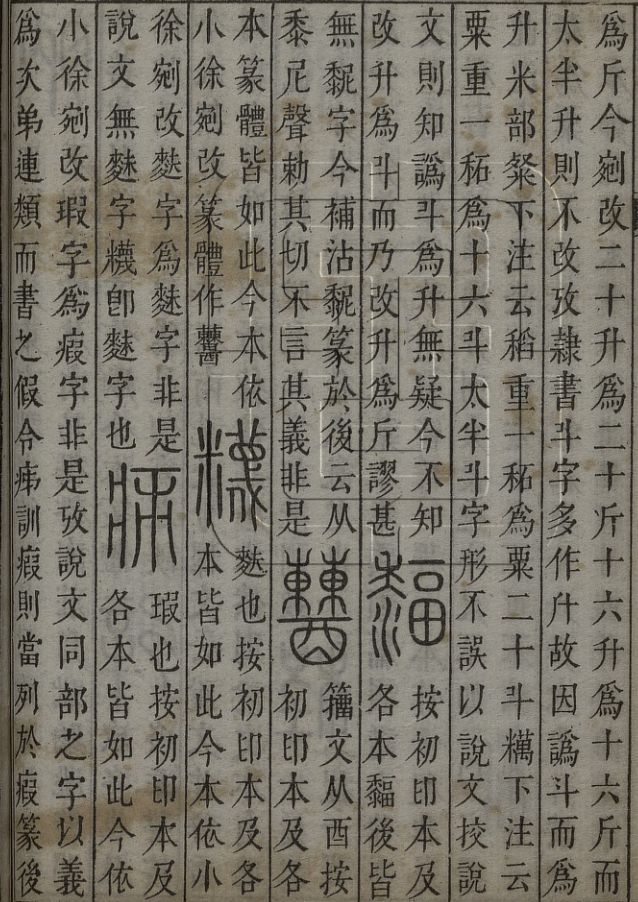 爲斤今剜改二十升爲二十斤十六升爲十六斤而
太半升則不改攷隷書斗字多作升故因譌斗而爲
升米部粲下注云稻重一䄷爲粟二十斗糲下注云
粟重一䄷爲十六斗太半斗字形不誤以說文挍說
文則知譌斗爲升無疑今不知
改升爲斗而乃改升爲斤謬甚
䵗
按初印本及
各本䵗後皆
無䵑字今補沾䵑篆於後云从
黍尼聲勅其切不言其義非是
籒文从酉按
初印本及各
本篆體皆如此今本依
小徐剜改篆體作
䊳
麩也按初印本及各
本皆如此今本依小
徐剜改麩字爲䴬字非是
說文無䴬字䊳卽䴬字也
瑕也按初印本及
各本皆如此今依
小徐剜改瑕字爲瘕字非是攷說文同部之字以義
爲次弟連類而書之假令訓瘕則當列於瘕篆後